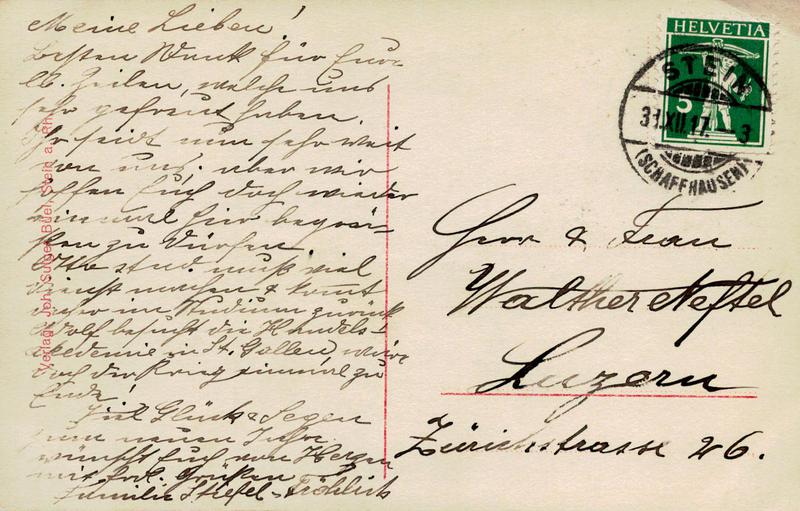 Meine Lieben!
Besten Dank für Eure
lb. Zeilen, welche uns
sehr gefreut haben.
Ihr seidt nun sehr weit
von uns, aber wir
hoffen Euch doch wieder
einmal hier begrüs-
sen zu dürfen.
Otto stud. muß viel
Dienst machen & kommt
daher im Studium zurück
Adolf besucht die Handels-
akademie in St. Gallen, wäre
doch der Krieg einmal zu
Ende!
Viel Glück & Segen
zum neuen Jahre
wünscht Euch von Herzen
mit frdl. Grüßen
Familie Stiefel-Fröhlich
Verlag: Joh. Sulger Büel, Stein a. Rh.
HELVETIA
5
STEIN
31.XII.17.-3
(SCHAFFHAUSEN)
Herr & Frau
Walther Neftel
Luzern
Zürichstrasse 26.